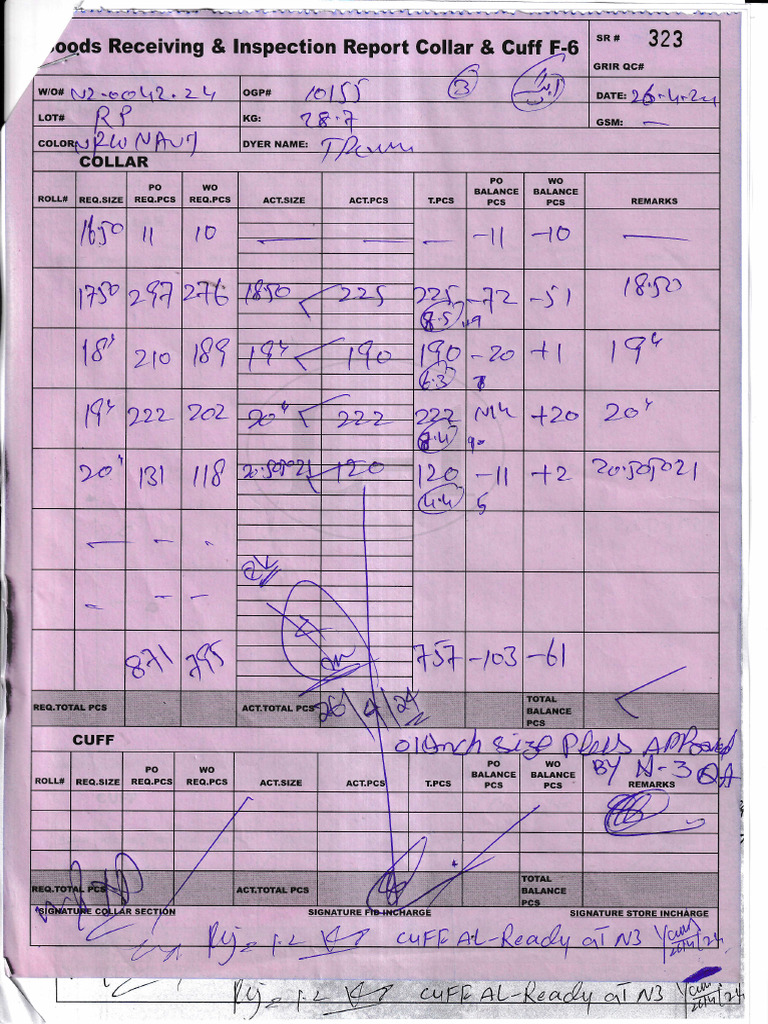 oods Receiving & Inspection Report Collar & Cuff F-6
SR # 323
GRIR QC#
W/O# N2-0042-24 OGP# 10155 3 DATE: 26-4-24
LOT# RP KG: 28.7 GSM: —
COLOR NAVY DYER NAME:
COLLAR
ROLL# REQ.SIZE PO REQ.PCS WO REQ.PCS ACT.SIZE ACT.PCS T.PCS PO BALANCE PCS WO BALANCE PCS REMARKS
1650 11 10 — — — -11 -10 —
1750 297 276 1850 225 225 -72 -51 18.50
8.5
18" 210 189 19" 190 190 -20 +1 19"
6.3
19" 222 202 20" 222 222 Nil +20 20"
8.4
20" 131 118 20.50 TO 21 120 120 -11 +2 20.50 TO 21
4.4
— - -
- - -
871 795 757 -103 -61
REQ.TOTAL PCS ACT.TOTAL PCS TOTAL BALANCE PCS
26/4/24
01 inch size Plus APProved
BY N-3 QA
CUFF
ROLL# REQ.SIZE PO REQ.PCS WO REQ.PCS ACT.SIZE ACT.PCS T.PCS PO BALANCE PCS WO BALANCE PCS REMARKS
REQ.TOTAL PCS ACT.TOTAL PCS TOTAL BALANCE PCS
SIGNATURE COLLAR SECTION SIGNATURE FIB INCHARGE SIGNATURE STORE INCHARGE
Rij = 1.2 CUFF AL-Ready at N3
Rij = 1.2 CUFF AL-Ready at N3